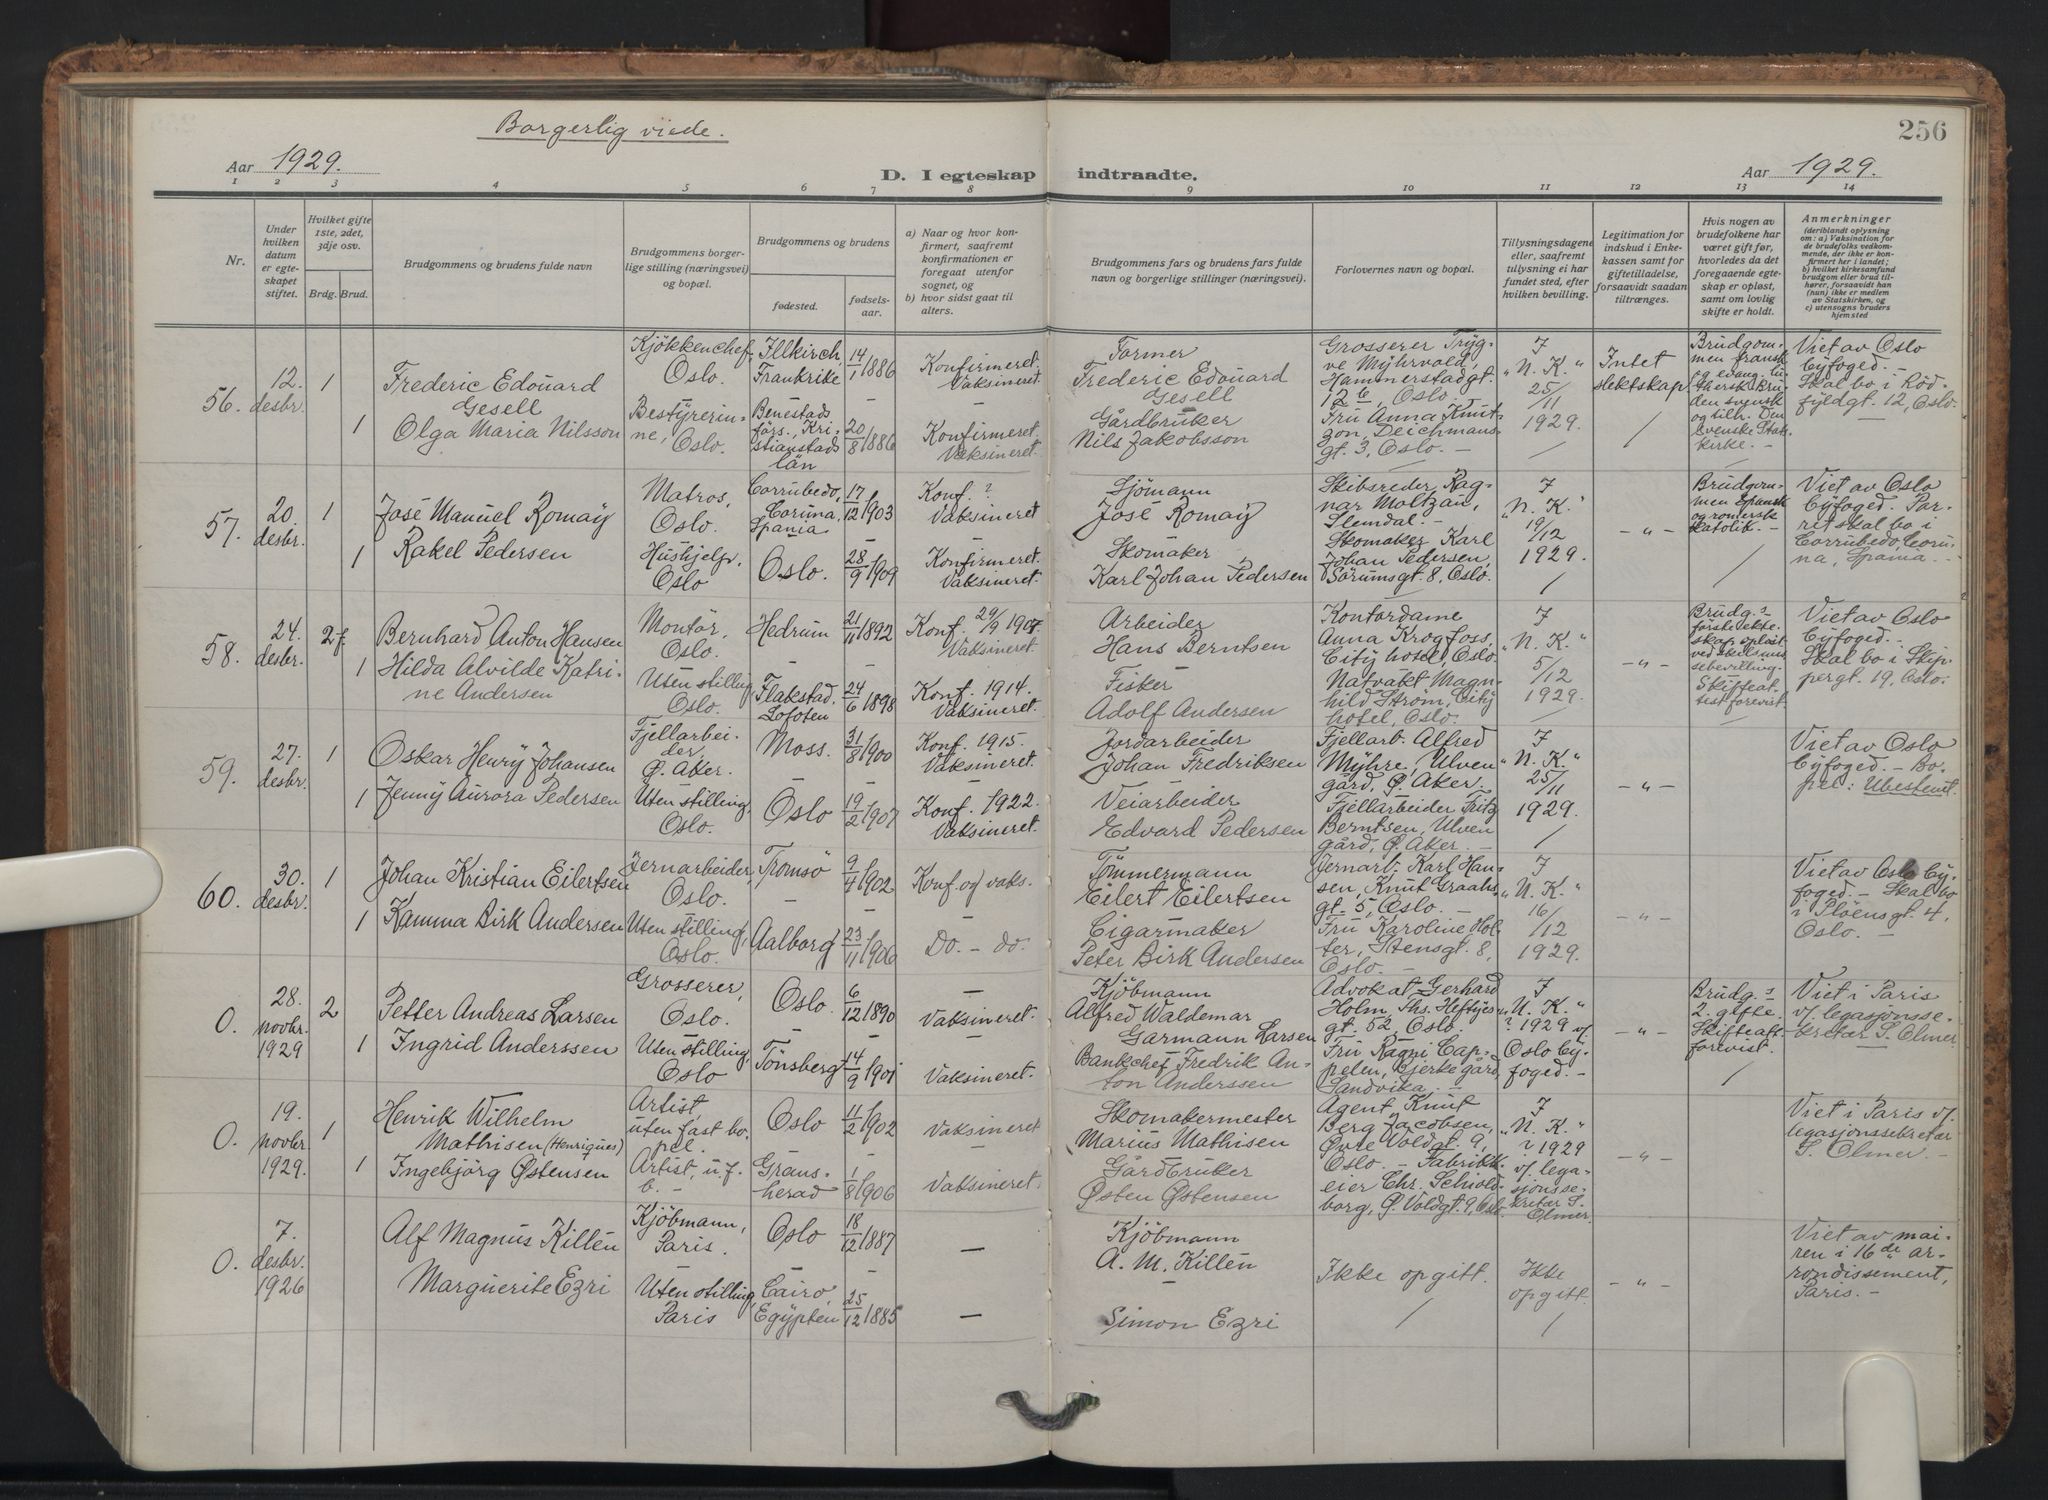 Borgerlig viede.
256
Aar 1929.
D. I egteskap indtraadte.
Aar 1929.
1 2 3 4 5 6 7 8 9 10 11 12 13 14
Nr.
Under
hvilken
datum
er egte-
skapet
stiftet.
Hvilket gifte
1ste, 2det,
3dje osv.
Brdg. Brud.
Brudgommens og brudens fulde navn
Brudgommens borger-
lige stilling (næringsvei)
og bopæl.
Brudgommens og brudens
fødested.
fødsels-
aar.
a) Naar og hvor kon-
firmert, saafremt
konfirmationen er
foregaat utenfor
sognet, og
b) hvor sidst gaat til
alters.
Brudgommens fars og brudens fars fulde
navn og borgerlige stillinger (næringsvei).
Forlovernes navn og bopæl.
Tillysningsdagene
eller, saafremt
tillysning ei har
fundet sted, efter
hvilken bevilling.
Legitimation for
indskud i Enke-
kassen samt for
giftetilladelse,
forsaavidt saadan
tiltrænges.
Hvis nogen av
brudefolkene har
været gift før,
hvorledes da det
foregaaende egte-
skap er opløst,
samt om lovlig
skifte er holdt.
Anmerkninger
(deriblandt oplysning
om: a) Vaksination for
de brudefolks vedkom-
mende, der ikke er kon-
firmert her i landet;
b) hvilket kirkesamfund
brudgom eller brud til-
hører, forsaavidt han
(hun) ikke er medlem
av Statskirken, og
c) utensogns bruders
hjemsted
56.
12.
desbr.
1
Frederic Edouard
Gesell
1
Olga Maria Nilsson
Kjøkkenchef,
Oslo.
Bestyrerin-
ne, Oslo.
Illkirch
Frankrike
–
Benestads
förs., Kri-
stianstads
län
14/1 1886
–
20/8 1886
Konfirmeret.
Vaksineret.
Konfirmeret.
Vaksineret.
Farmer
Frederic Edouard
Gesell
Gårdbruker
Nils Jakobsson
Grosserer Tryg-
ve Myhrvold,
Hammerstadgt.
12 6, Oslo.
Fru Anna Knut-
zon, Deichmans-
gt. 3, Oslo. –
I
"N. K."
25/11
1929.
Intet
slektskap
/
Brudgom-
men fransk
og evang. lu-
thersk. Bru-
den svensk
og tilh. Den
svenske Stats-
kirke. –
Viet av Oslo
byfoged. –
Skal bo i Rød-
fyldgt. 12, Oslo.
57.
20.
desbr.
1
José Manuel Romay
1
Rakel Pedersen
Matros,
Oslo.
Hushjelp.
Oslo
Corrubedo,
Coruna,
Spania
Oslo.
17/12 1903
28/9 1909
Konf. ?
Vaksineret
Konfirmeret.
Vaksineret.
Sjömann
José Romay
Skomaker
Karl Johan Pedersen
Skibsreder Rag-
nar Moltzau,
Slemdal. –
Skomaker Karl
Johan Pedersen,
Sörumsgt. 8, Oslo.
I
"N. K."
19/12
1929.
/
– " –
Brudgom-
men spansk
og romersk
katolik. –
/
Viet av Oslo
byfoged. Pa-
ret skal bo i
Corrubedo, Coru-
na, Spania. –
58.
24.
desbr.
2 f
Bernhard Anton Hansen
1
Hilda Alvilde Katri-
ne Andersen
Montør,
Oslo.
Uten stilling
Oslo.
Hedrum
–
Flakstad,
Lofoten
21/11 1892
–
24/6 1898
Konf. 29/9 1907
Vaksineret.
Konf. 1914.
Vaksineret.
Arbeider
Hans Berntsen
Fisker
Adolf Andersen
Kontordame
Anna Krogfoss,
City hotel, Oslo.
Natvakt Magn-
hild Strøm, City
hotel, Oslo.
I
"N. K."
5/12
1929.
/
– " –
Brudg.s
første ekte-
skap opløst
ved skilsmis-
sebevilling.
Skifteat-
test forevist.
Viet av Oslo
byfoged. –
Skal bo i Skip-
pergt. 19, Oslo.
59.
27.
desbr.
1
Oskar Henry Johansen
1
Jenny Aurora Pedersen
Fjellarbei-
der,
Ø. Aker.
Uten stilling,
Oslo.
Moss.
–
Oslo
31/8 1900
–
19/2 1907
Konf. 1915.
Vaksineret.
Konf. 1922.
Vaksineret.
Jordarbeider
Johan Fredriksen
Veiarbeider
Edvard Pedersen
Fjellarb. Alfred
Myhre, Ulven
gård, Ø. Aker.
Fjellarbeider Fritz
Berntsen, Ulven
gård, Ø. Aker. –
I
"N. K."
25/11
1929.
/
– " –
Viet av Oslo
byfoged. – Bo-
pel: Ubestemt.
60.
30.
desbr.
1
Johan Kristian Eilertsen
1
Kamma Birk Andersen
Jernarbeider,
Oslo.
Uten stilling,
Oslo.
Tromsö
–
Aalborg
9/4 1902
–
23/11 1906
Konf. og vaks.
–
Do. – do.
Tömmermann
Eilert Eilertsen
Cigarmaker
Peter Birk Andersen
Jernarb. Karl Han-
sen, Knut Graahs
gt. 5, Oslo. –
Fru Karoline Hol-
ter, Stensgt. 8,
Oslo. –
I
"N. K."
16/12
1929.
– " –
Viet av Oslo by-
foged. – Skal bo
i Pløensgt. 4,
Oslo. –
0.
28.
novbr.
1929
2
Petter Andreas Larsen
1
Ingrid Anderssen
Grosserer,
Oslo.
Uten stilling,
Oslo
Oslo
–
Tönsberg
6/12 1890
–
14/9 1901
–
Vaksineret.
–
Vaksineret.
Kjöbmann
Alfred Waldemar
Garmann Larsen
Bankchef Fredrik An-
ton Anderssen
Advokat Gerhard
Holm, Ths. Heftyes
gt. 52, Oslo.
Fru Ragni Cap-
pelen, Bjerke gård,
Sandvika. –
I
"N. K."
? 1929 v/
Oslo by-
foged. –
– " –
Brudg.s
2. gifte.
Skifteatt.
forevist.
/
Viet i Paris
v/. legasjonsse-
kretær S. Olmer
0.
19.
novbr.
1929.
1
Henrik Wilhelm
Mathisen (Henriques)
1
Ingebjörg Østensen
Artist,
uten fast bo-
pel.
Artist, u. f.
b. –
Oslo
Grans-
herad
11/2 1902
1/8 1906
Vaksineret
–
Vaksineret.
Skomakermester
Marius Mathisen
Gårdbruker
Østen Østensen
Agent Knut
Berg Jacobsen,
Øvre Voldgt. 9,
Oslo. – Fabrikk-
eier Chr. Schiold-
borg, Ø. Voldgt. 9, Oslo.
I
"N. K."
? 1929
v/. lega-
sjonsse-
kretær S.
Olmer.
– " –
Viet i Paris v/.
legasjonssekretær
S. Olmer. –
0.
7.
desbr.
1926
Alf Magnus Killén
Marguerite Ezri
Kjöbmann,
Paris.
Uten stilling,
Paris
Oslo
–
Cairo,
Egypten
18/12 1887
–
25/12 1885
–
–
Kjöbmann
A. M. Killén
–
Simon Ezri
Ikke opgitt.
/
Ikke
opgitt.
/
– " –
Viet av mai-
ren i 16de ar-
rondissement,
Paris. –